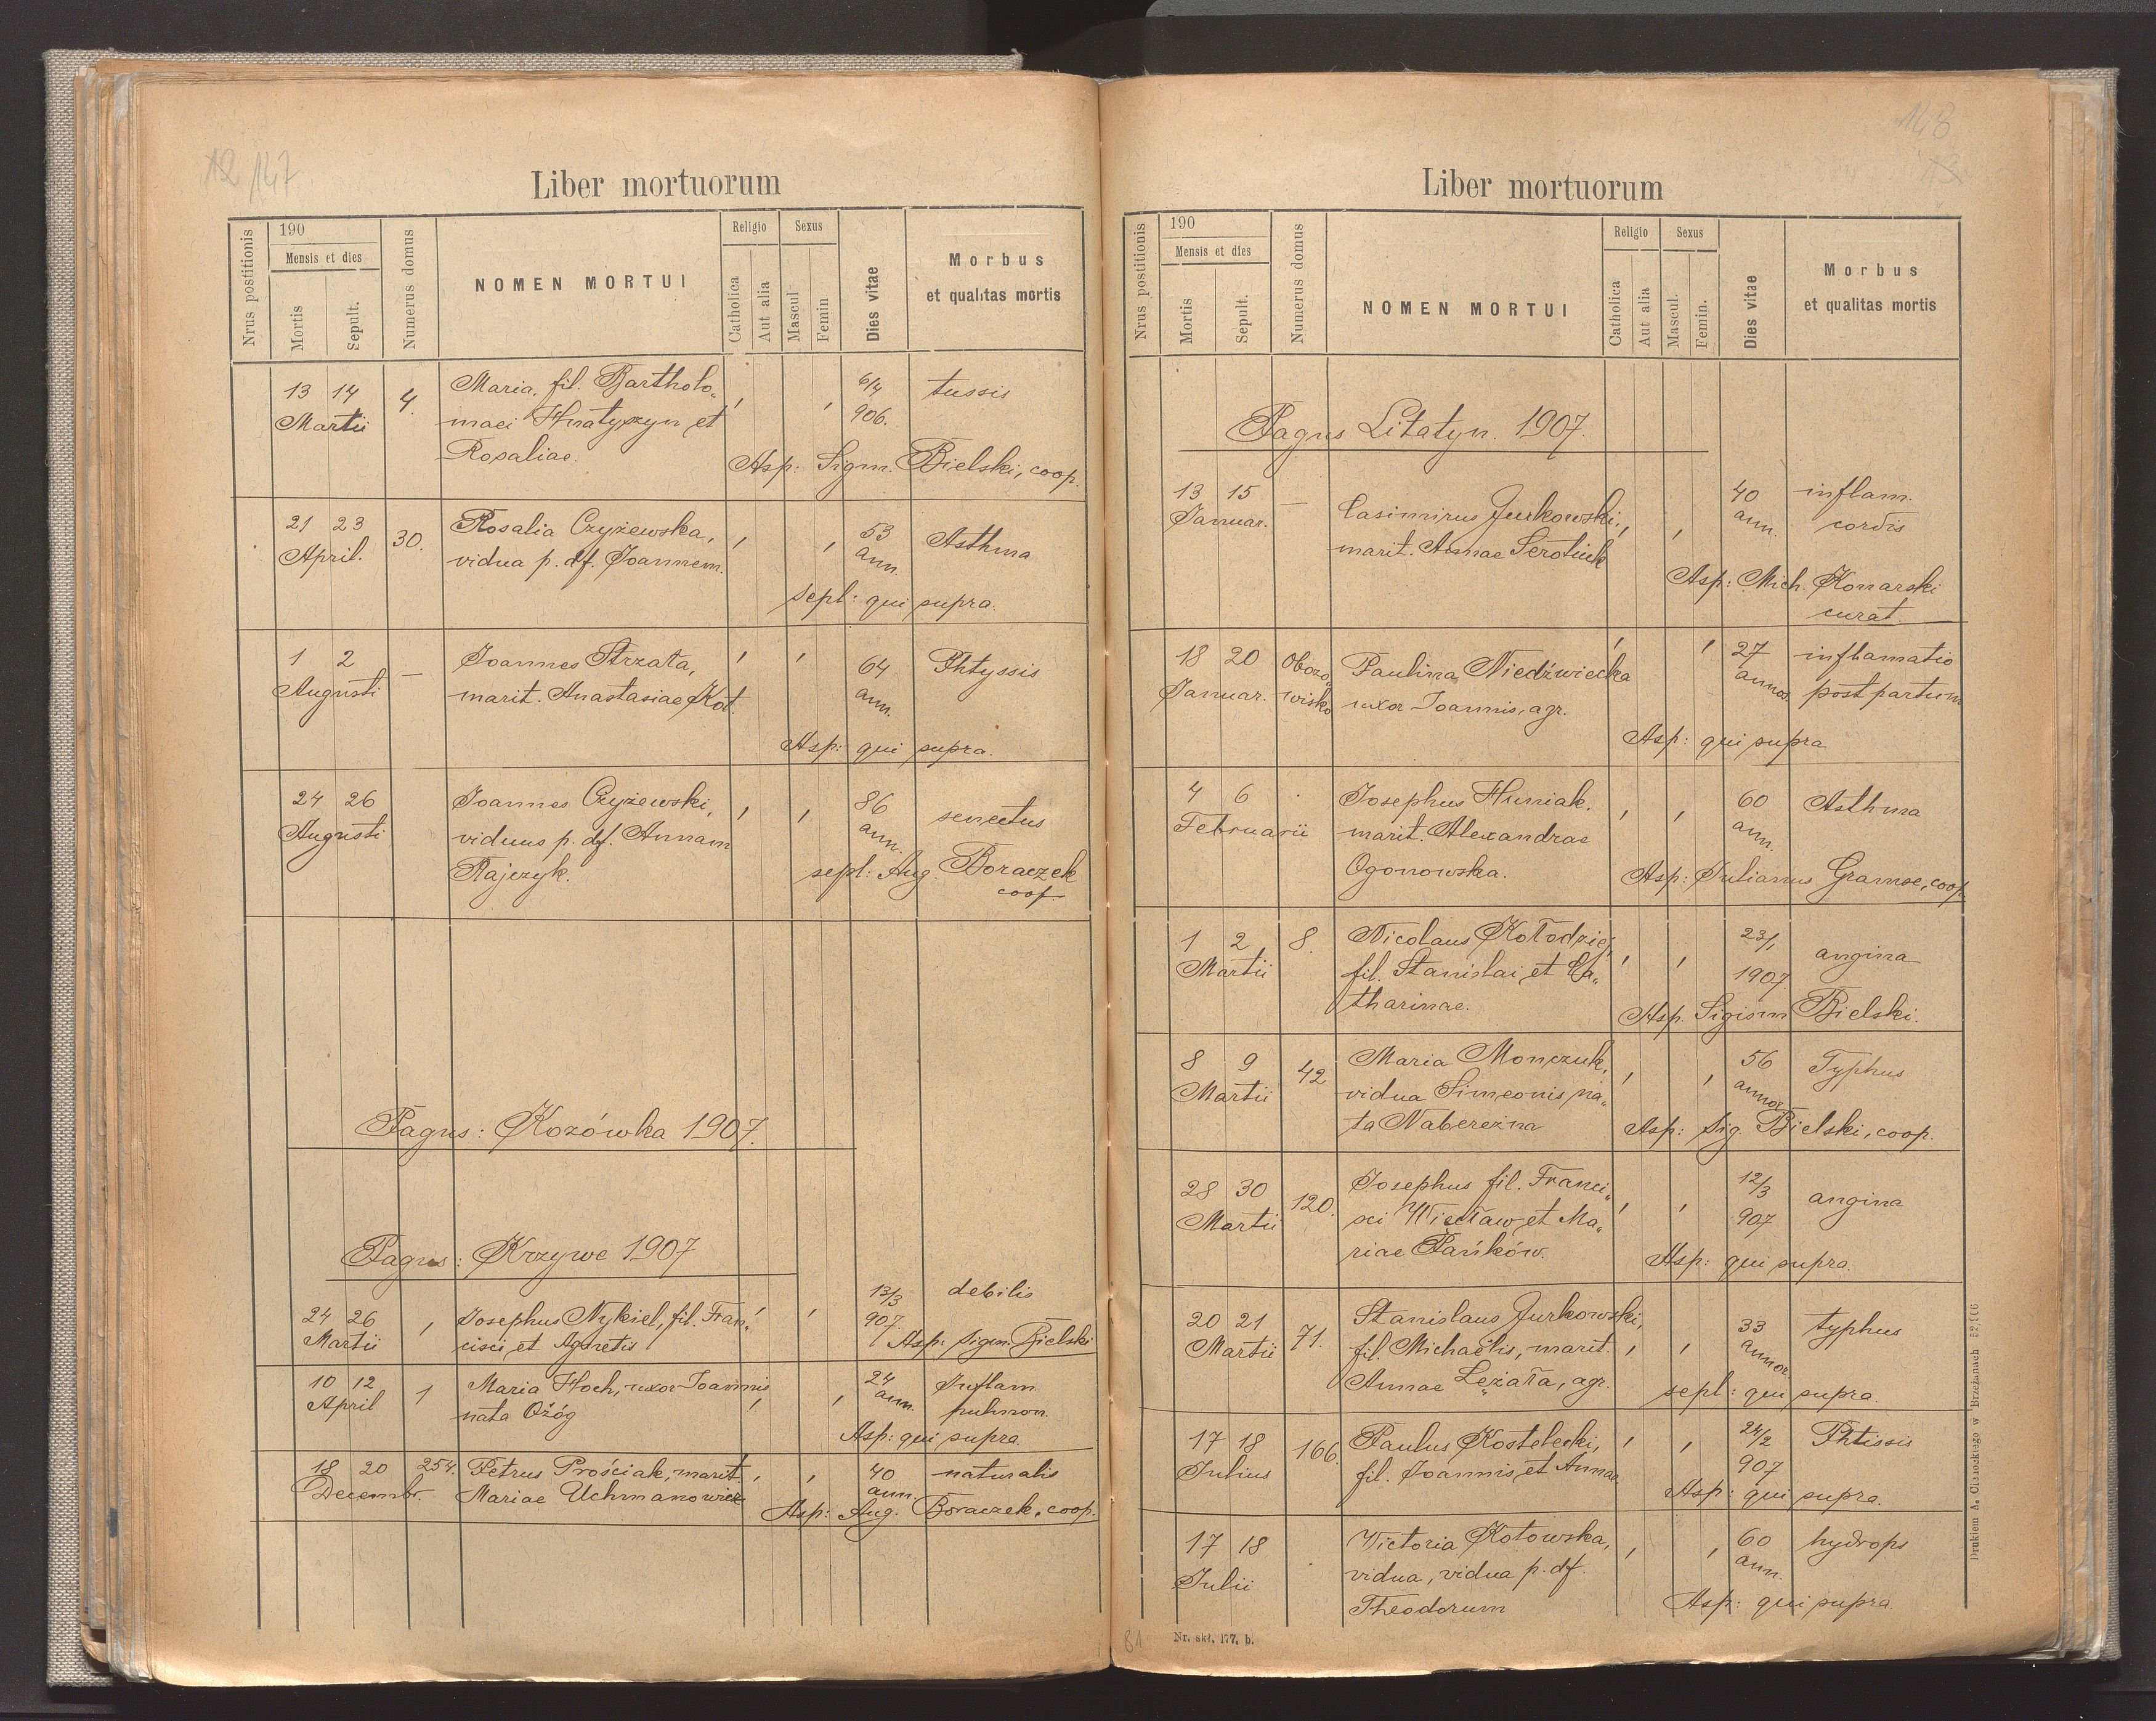 12 147
Liber mortuorum
Nrus postitionis
190
Mensis et dies
Mortis
Sepult.
Numerus domus
NOMEN MORTUI
Religio
Catholica
Aut alia
Sexus
Mascul
Femin
Dies vitae
Morbus
et qualitas mortis
13 14 4. Maria, fil. Bartholo„ , , 6/4 tussis
Martii maei Hnatyszyn et 906.
Rosaliae. Asp: Sigm. Bielski, coop.
21 23 30. Rosalia Czyżewska, , , 53 Asthma
April. vidua p. df. Joannem. ann.
sepl: qui supra.
1 2 – Joannes Strzała, , , 64 Phtyssis
Augusti marit. Anastasiae Kot. ann.
Asp: qui supra.
24 26 Joannes Czyżewski, , , 86 senectus
Augusti viduus p. df. Annam ann.
Rajczyk. sepl: Aug. Boraczek
coop.
Pagus: Kozówka 1907.
Pagus: Krzywe 1907
24 26 , Josephus Nykiel, fil. Fran„ , , 13/3 debilis
Martii cisci et Agnetis 907. Asp: Sigm. Bielski
10 12 1 Maria Hoch, uxor Joannis , , 24 Inflam.
April nata Ożóg ann. pulmon.
Asp: qui supra.
18 20 254. Petrus Prościak, marit. , , 40 naturalis
Decembr. Mariae Uchmanowicz ann.
Asp: Aug. Boraczek, coop.
148
13
Liber mortuorum
Nrus postitionis
190
Mensis et dies
Mortis
Sepult.
Numerus domus
NOMEN MORTUI
Religio
Catholica
Aut alia
Sexus
Mascul.
Femin.
Dies vitae
Morbus
et qualitas mortis
Pagus Litatyn. 1907.
13 15 – Casimirus Jurkowski, , , 40 inflam.
Januar. marit. Annae Serotiuk ann. cordis
Asp: Mich. Konarski
curat.
18 20 Obozo„ Paulina Niedźwiecka , , 27 inflamatio
Januar. wisko uxor Joannis, agr. annor. post partum
Asp: qui supra
4 6 . Josephus Huniak. , , 60 Asthma
Februarii marit. Alexandrae ann.
Ogonowska. Asp: Julianus Gramse, coop.
1 2 8. Nicolaus Kołodziej, , , 23/1 angina
Martii fil. Stanislai et Ca„ 1907
tharinae. Asp. Sigism Bielski.
8 9 42 Maria Monczuk, , , 56 Typhus
Martii vidua Simeonis na„ annor
ta Nabereżna Asp: Sig. Bielski, coop.
28 30 120. Josephus fil. Franci„ , , 12/3 angina
Martii sci Więcław et Ma„ 907
riae Pańków. Asp: qui supra.
20 21 71. Stanislaus Jurkowski, , , 33 typhus
Martii fil. Michaelis, marit. annor
Annae Leżała, agr. sepl: qui supra.
17 18 166. Paulus Kostelecki, , , 24/2 Phtissis
Julius fil. Joannis et Annae 907
Asp: qui supra.
17 18 . Victoria Kotowska, , , 60 hydrops
Julii vidua, vidua p. df. ann.
Theodorum Asp: qui supra
81 Nr. skł. 177. b.